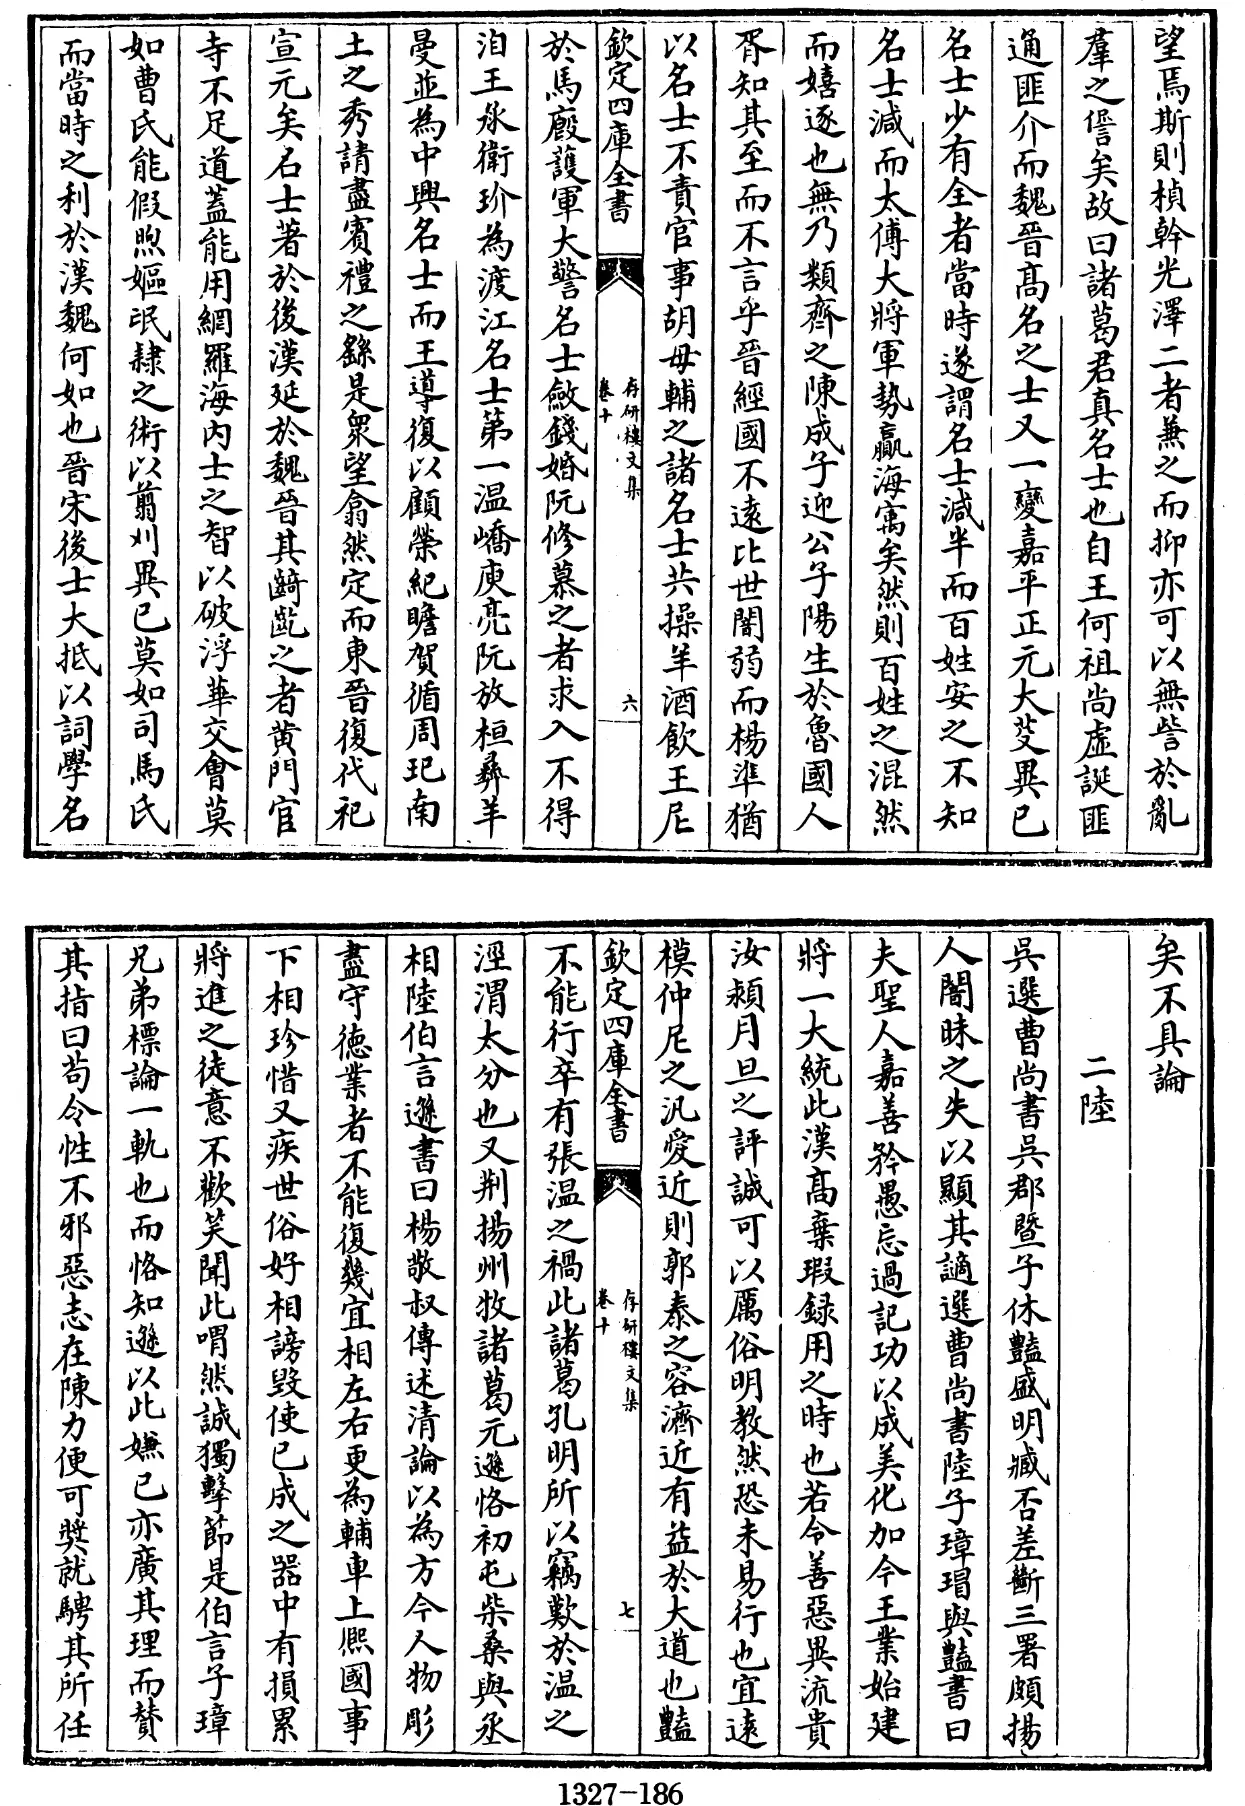 望焉斯則楨幹光澤二者兼之而抑亦可以無訾於亂
羣之僭矣故曰諸葛君真名士也自王何祖尚虛誕匪
通匪介而魏晉髙名之士又一變嘉平正元大芟異已
名士少有全者當時遂謂名士減半而百姓安之不知
名士減而太傅大將軍勢贏海寓矣然則百姓之混然
而嬉遂也無乃類齊之陳成子迎公子陽生於魯國人
胥知其至而不言乎晉經國不逺比世闇弱而楊準猶
以名士不責官事胡母輔之諸名士共操羊酒飲王尼
欽定四庫全書
存研樓文集
卷十
六
於馬廄護軍大警名士斂錢婚阮修慕之者求入不得
洎王承衛玠為渡江名士第一温嶠庾亮阮放桓彝羊
曼並為中興名士而王導復以顧榮紀瞻賀循周玘南
土之秀請盡賓禮之繇是衆望翕然定而東晉復代祀
宣元矣名士著於後漢延於魏晉其齮齕之者黄門官
寺不足道蓋能用網羅海内士之智以破浮華交會莫
如曹氏能假喣嫗氓隷之術以翦刈異已莫如司馬氏
而當時之利於漢魏何如也晉宋後士大抵以詞學名
矣不具論
二陸
吳選曹尚書吳郡暨子休豔盛明臧否差斷三署頗揚
人闇昧之失以顯其謫選曹尚書陸子璋瑁與豔書曰
夫聖人嘉善矜愚忘過記功以成美化加今王業始建
將一大統此漢髙棄瑕録用之時也若令善惡異流貴
汝潁月旦之評誠可以厲俗明教然恐未易行也宜逺
模仲尼之汎愛近則郭泰之容濟近有益於大道也豔
欽定四庫全書
存研樓文集
卷十
七
不能行卒有張温之禍此諸葛孔明所以竊歎於温之
涇渭太分也又荆揚州牧諸葛元遜恪初屯柴桑與丞
相陸伯言遜書曰楊敬叔傳述清論以為方今人物彫
盡守徳業者不能復幾宜相左右更為輔車上熈國事
下相珍惜又疾世俗好相謗毀使已成之器中有損累
將進之徒意不歡笑聞此喟然誠獨擊節是伯言子璋
兄弟標論一軌也而恪知遜以此嫌已亦廣其理而賛
其指曰茍令性不邪惡志在陳力便可奬就騁其所任
1327-186